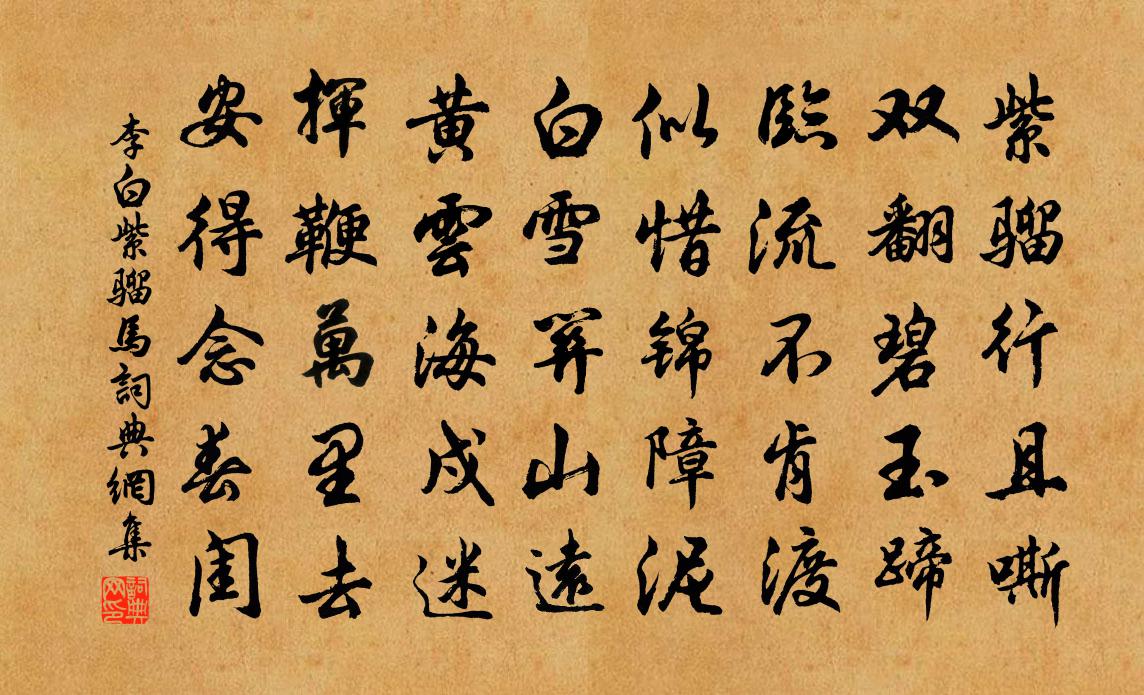 紫骝行且嘶
双翻碧玉蹄
臨流不肯渡
似惜锦障泥
白雪關山遠
黄雲海戍迷
揮鞭萬里去
安得念春閨
李白紫骝馬詞典網集
詞典网印